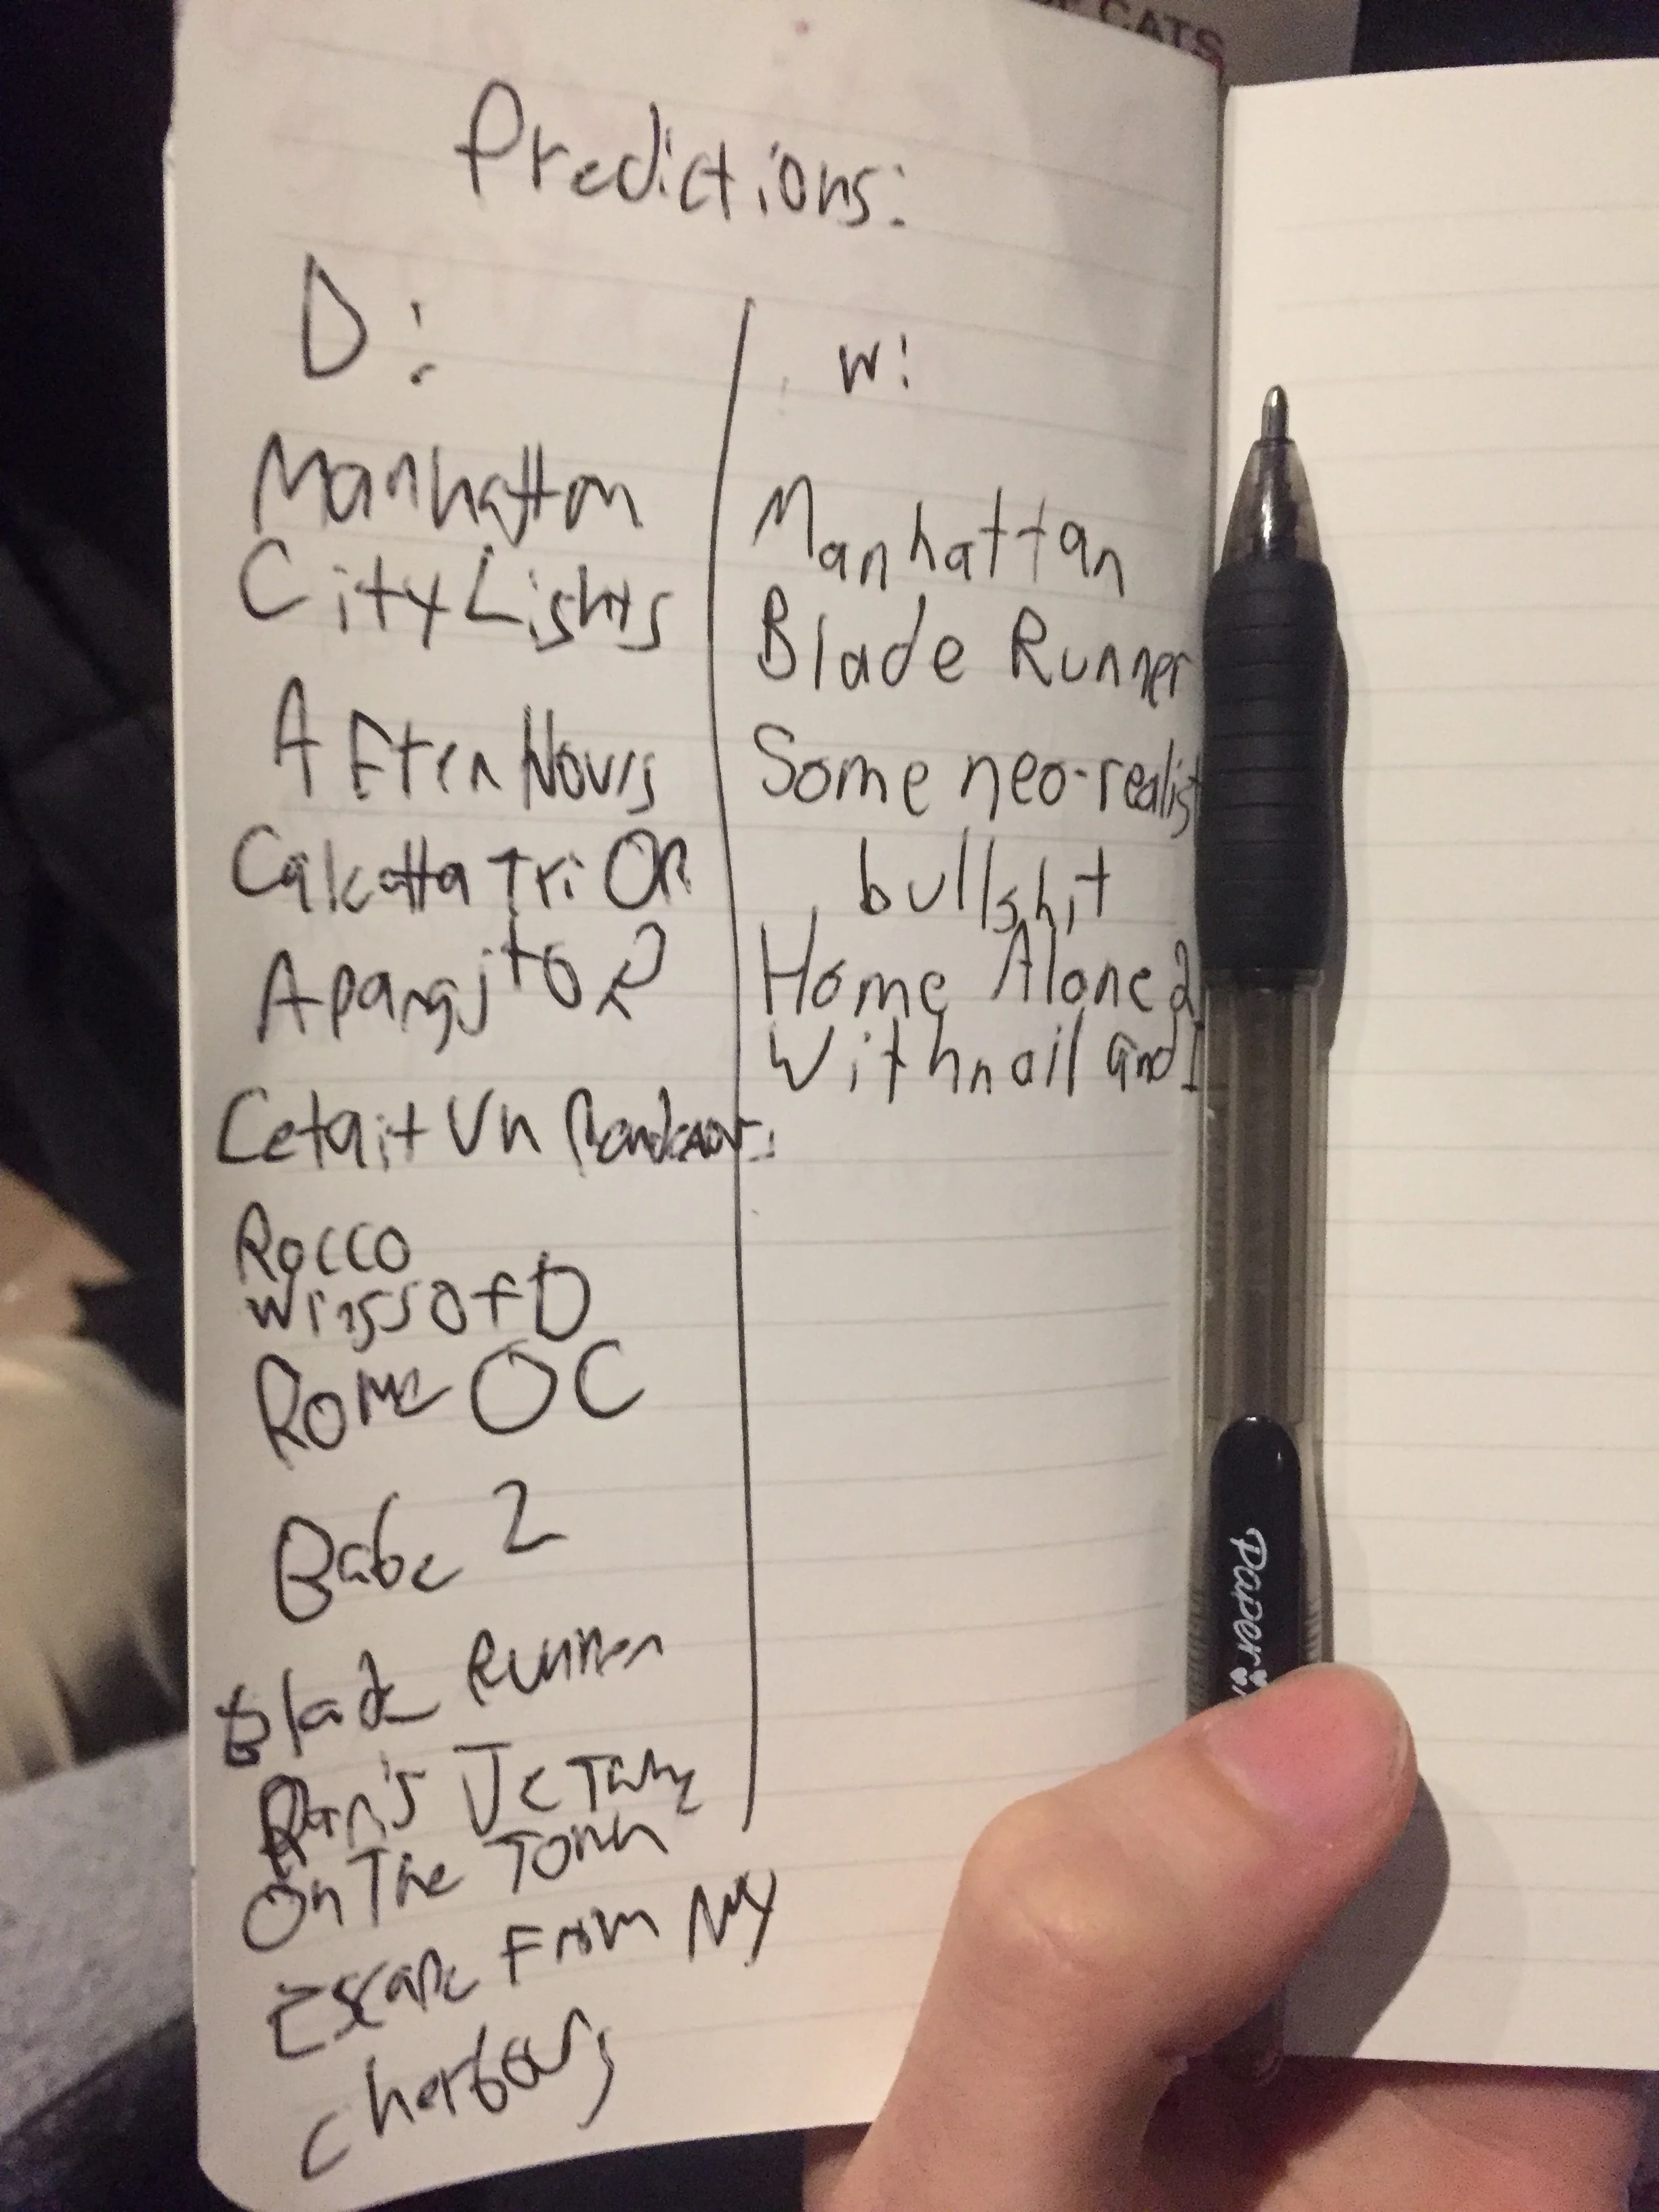 OF CATS
Predictions:
D:
Manhatton
City Lights
After Hours
Calcutta Tri OR
Aparajito?
Cetait Un
Rocco
Wings of D
Rome OC
Babe 2
Blade Runner
On The Town
Escape From NY
Cherbourg
W:
Manhattan
Blade Runner
Some neo-realist
bullshit
Home Alone 2
Withnail and I
Paper